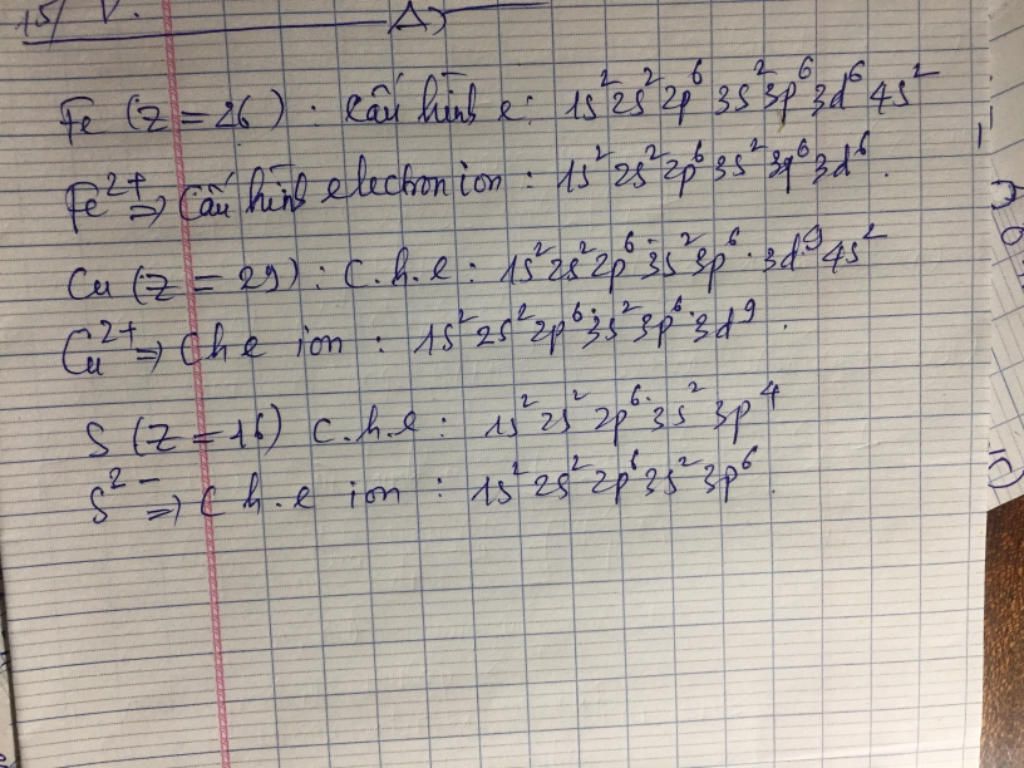 15/ V. A)
Fe (Z = 26) : Cấu hình e : 1s² 2s² 2p⁶ 3s² 3p⁶ 3d⁶ 4s²
Fe²⁺ ⇒ Cấu hình electron ion : 1s² 2s² 2p⁶ 3s² 3p⁶ 3d⁶.
Cu (Z = 29) : C.h.e : 1s² 2s² 2p⁶ 3s² 3p⁶ 3d⁹ 4s²
Cu²⁺ ⇒ C h e ion : 1s² 2s² 2p⁶ 3s² 3p⁶ 3d⁹.
S (Z = 16) C.h.e : 1s² 2s² 2p⁶ 3s² 3p⁴
S²⁻ ⇒ C h.e ion : 1s² 2s² 2p⁶ 3s² 3p⁶.